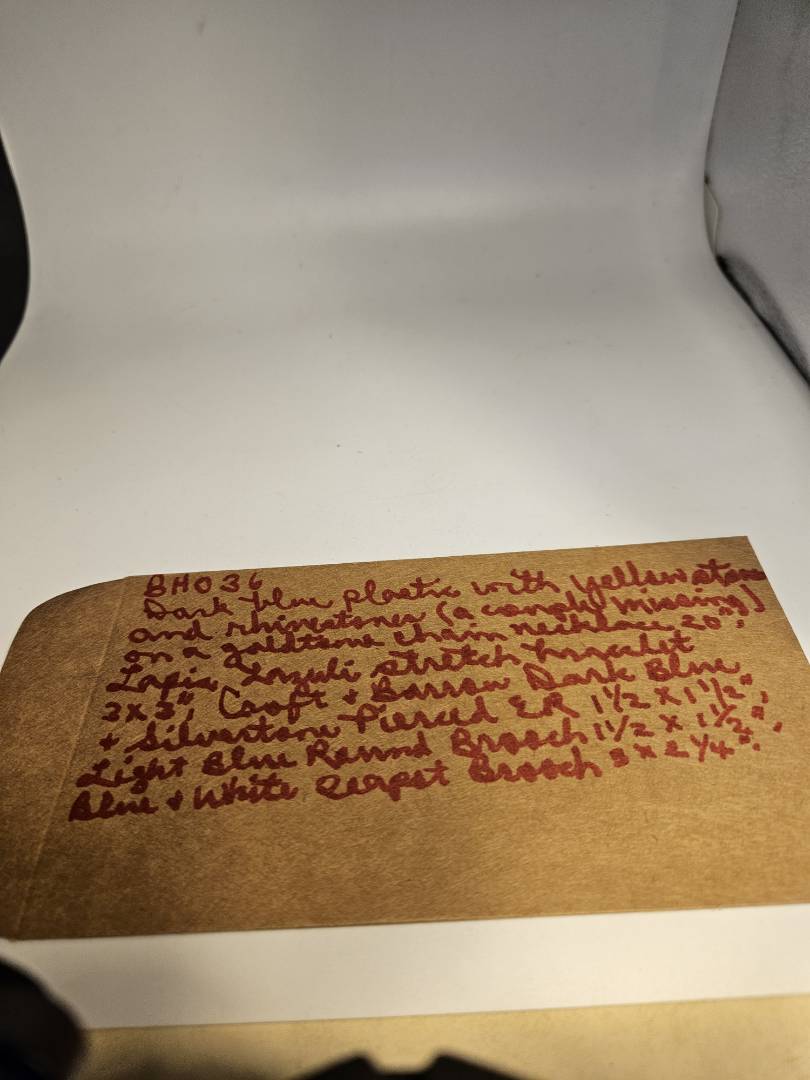 BH036
Dark blue plastic with yellow stones
and rhinestones (a couple missing)
on a goldtone chain necklace 20",
Lapis Lazuli stretch bracelet
3x3", Croft + Barrow Dark Blue
+ Silvertone Pierced ER 1 1/2 x 1 1/2",
Light Blue Round Brooch 1 1/2 x 1 1/2",
Blue + White Brooch 3 x 2 1/4".